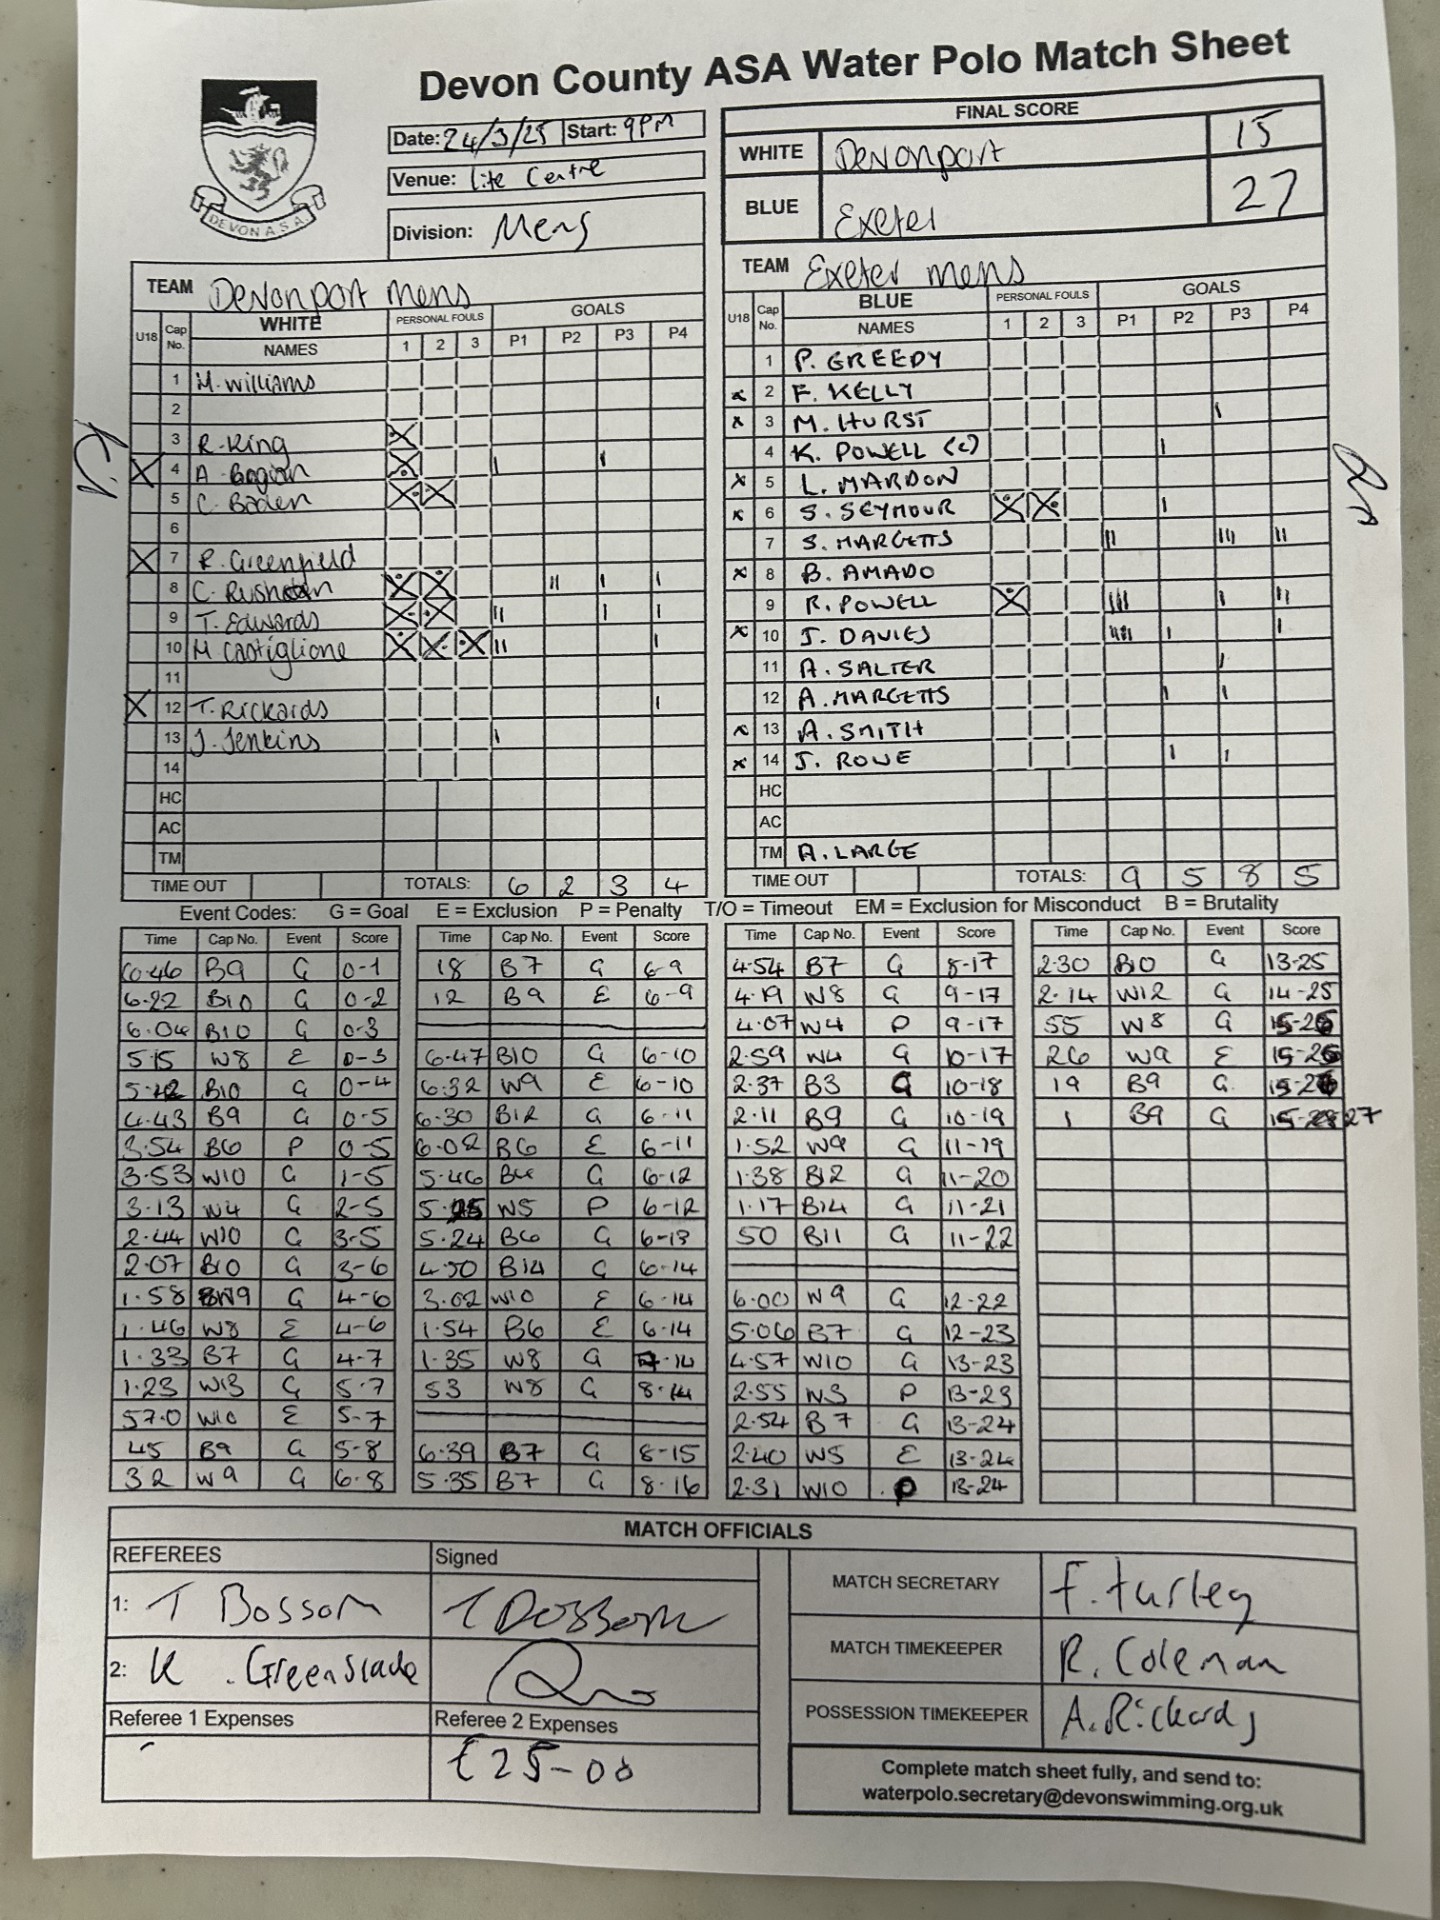 Devon County ASA Water Polo Match Sheet
DEVON A.S.A.
Date: 24/3/25 Start: 9PM
Venue: Life Centre
Division: Mens
FINAL SCORE
WHITE Devonport 15
BLUE Exeter 27
TEAM Devonport mens
U18 Cap No. WHITE NAMES PERSONAL FOULS 1 2 3 GOALS P1 P2 P3 P4
1 M. Williams
2
3 R. King X
X 4 A. X I I
5 C. Boden X X
6
X 7 R. Greenfield
8 C. X X II I I
9 T. Edwards X X II I I
10 M Castiglione X X X II I
11
X 12 T. Rickards I
13 J. Jenkins I
14
HC
AC
TM
TIME OUT TOTALS: 6 2 3 4
TEAM Exeter mens
U18 Cap No. BLUE NAMES PERSONAL FOULS 1 2 3 GOALS P1 P2 P3 P4
1 P. GREEDY
x 2 F. KELLY
x 3 M. HURST I
4 K. POWELL (C) I
x 5 L. MARDON
x 6 S. SEYMOUR X X I
7 S. MARGETTS II III II
x 8 B. AMADO
9 R. POWELL X III I II
x 10 J. DAVIES IIII I I
11 A. SALTER I
12 A. MARGETTS I I
x 13 A. SMITH
x 14 J. ROWE I I
HC
AC
TM A. LARGE
TIME OUT TOTALS: 9 5 8 5
Event Codes: G = Goal E = Exclusion P = Penalty T/O = Timeout EM = Exclusion for Misconduct B = Brutality
Time Cap No. Event Score
6.46 B9 G 0-1
6.22 B10 G 0-2
6.04 B10 G 0-3
5.15 W8 E 0-3
B10 G 0-4
4.43 B9 G 0-5
3.54 B6 P 0-5
3.53 W10 G 1-5
3.13 W4 G 2-5
2.44 W10 G 3-5
2.07 B10 G 3-6
1.58 W9 G 4-6
1.46 W8 E 4-6
1.33 B7 G 4-7
1.23 W13 G 5-7
57.0 W10 E 5-7
45 B9 G 5-8
32 W9 G 6-8
Time Cap No. Event Score
18 B7 G 6-9
12 B9 E 6-9
6.47 B10 G 6-10
6.32 W9 E 6-10
6.30 B12 G 6-11
6.02 B6 E 6-11
5.46 B4 G 6-12
5.25 W5 P 6-12
5.24 B6 G 6-13
4.50 B14 G 6-14
3.02 W10 E 6-14
1.54 B6 E 6-14
1.35 W8 G 7-14
53 W8 G 8-14
6.39 B7 G 8-15
5.35 B7 G 8-16
Time Cap No. Event Score
4.54 B7 G 8-17
4.19 W8 G 9-17
4.07 W4 P 9-17
2.59 W4 G 10-17
2.37 B3 G 10-18
2.11 B9 G 10-19
1.52 W9 G 11-19
1.38 B12 G 11-20
1.17 B14 G 11-21
50 B11 G 11-22
6.00 W9 G 12-22
5.06 B7 G 12-23
4.57 W10 G 13-23
2.55 W3 P 13-23
2.54 B7 G 13-24
2.40 W5 E 13-24
2.31 W10 P 13-24
Time Cap No. Event Score
2.30 B10 G 13-25
2.14 W12 G 14-25
55 W8 G 15-25
26 W9 E 15-25
19 B9 G 15-26
1 B9 G 15-27
MATCH OFFICIALS
REFEREES Signed
1: T Bossom T Bossom
2: K. Greenslade
Referee 1 Expenses Referee 2 Expenses
- £25-00
MATCH SECRETARY F. Turley
MATCH TIMEKEEPER R. Coleman
POSSESSION TIMEKEEPER A. Rickards
Complete match sheet fully, and send to:
waterpolo.secretary@devonswimming.org.uk